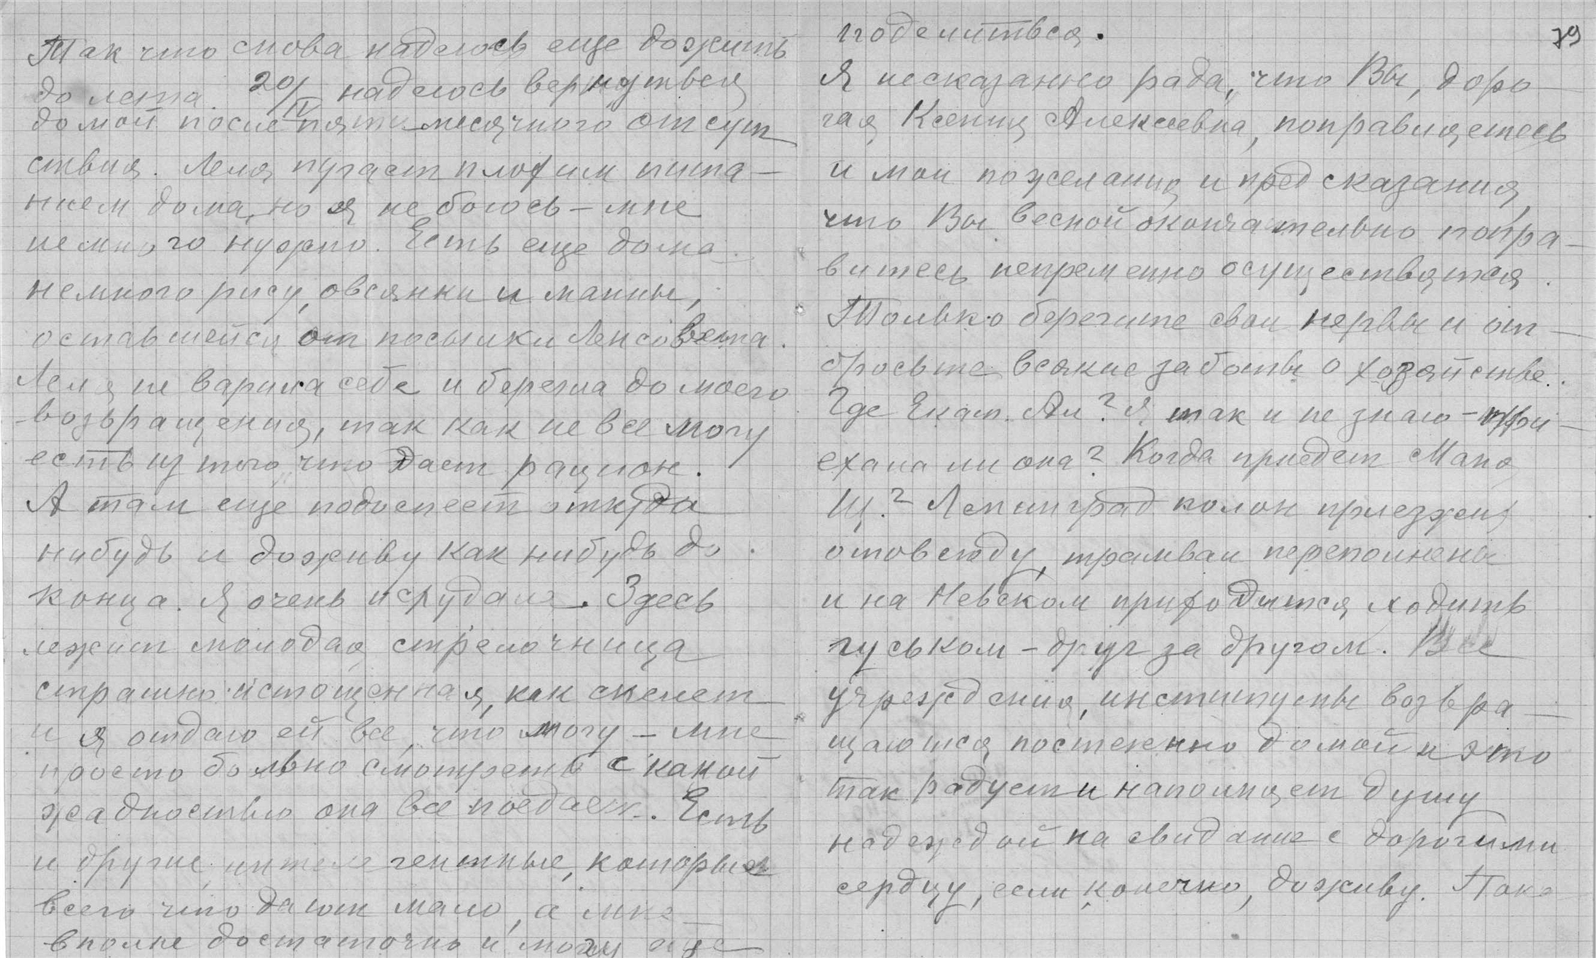 Так что снова надеюсь еще дожить
до лета. 20/IV надеюсь вернуться
домой после пятимесячного отсут
ствия. Леля пугает плохим пита-
нием дома, но я не боюсь - мне
немного нужно. Есть еще дома
немного рису, овсянки и манны,
оставшейся от посылки Ленсовета.
Леля не варила себе и берегла до моего
возвращения, так как не все могу
есть из того, что дает рацион.
А там еще подоспеет откуда
нибудь и доживу как нибудь до
конца. Я очень исхудала. Здесь
лежит молодая стрелочница
страшно истощенная, как скелет
и я отдаю ей все, что могу - мне
просто больно смотреть с какой
жадностью она все поедает. Есть
и другие, интелегентные, которым
всего что дают мало, а мне
вполне достаточно и могу еще
поделиться.
79
Я несказанно рада, что Вы, доро-
гая Ксения Алексеевна, поправляетесь
и мои пожелания и предсказания,
что Вы весной окончательно попра-
витесь непременно осуществятся.
Только берегите свои нервы и от-
бросьте всякие заботы о хозяйстве.
Где Екат. Ал? Я так и не знаю - при-
ехала ли она? Когда приедет
Щ.? Ленинград полон приезжих
отовсюду, трамваи переполнены
и на Невском приходится ходить
гуськом - друг за другом. Все
учреждения, институты возвра-
щаются постепенно домой и это
так радует и наполняет душу
надеждой на свидание с дорогими
сердцу, если, конечно, доживу. Пока